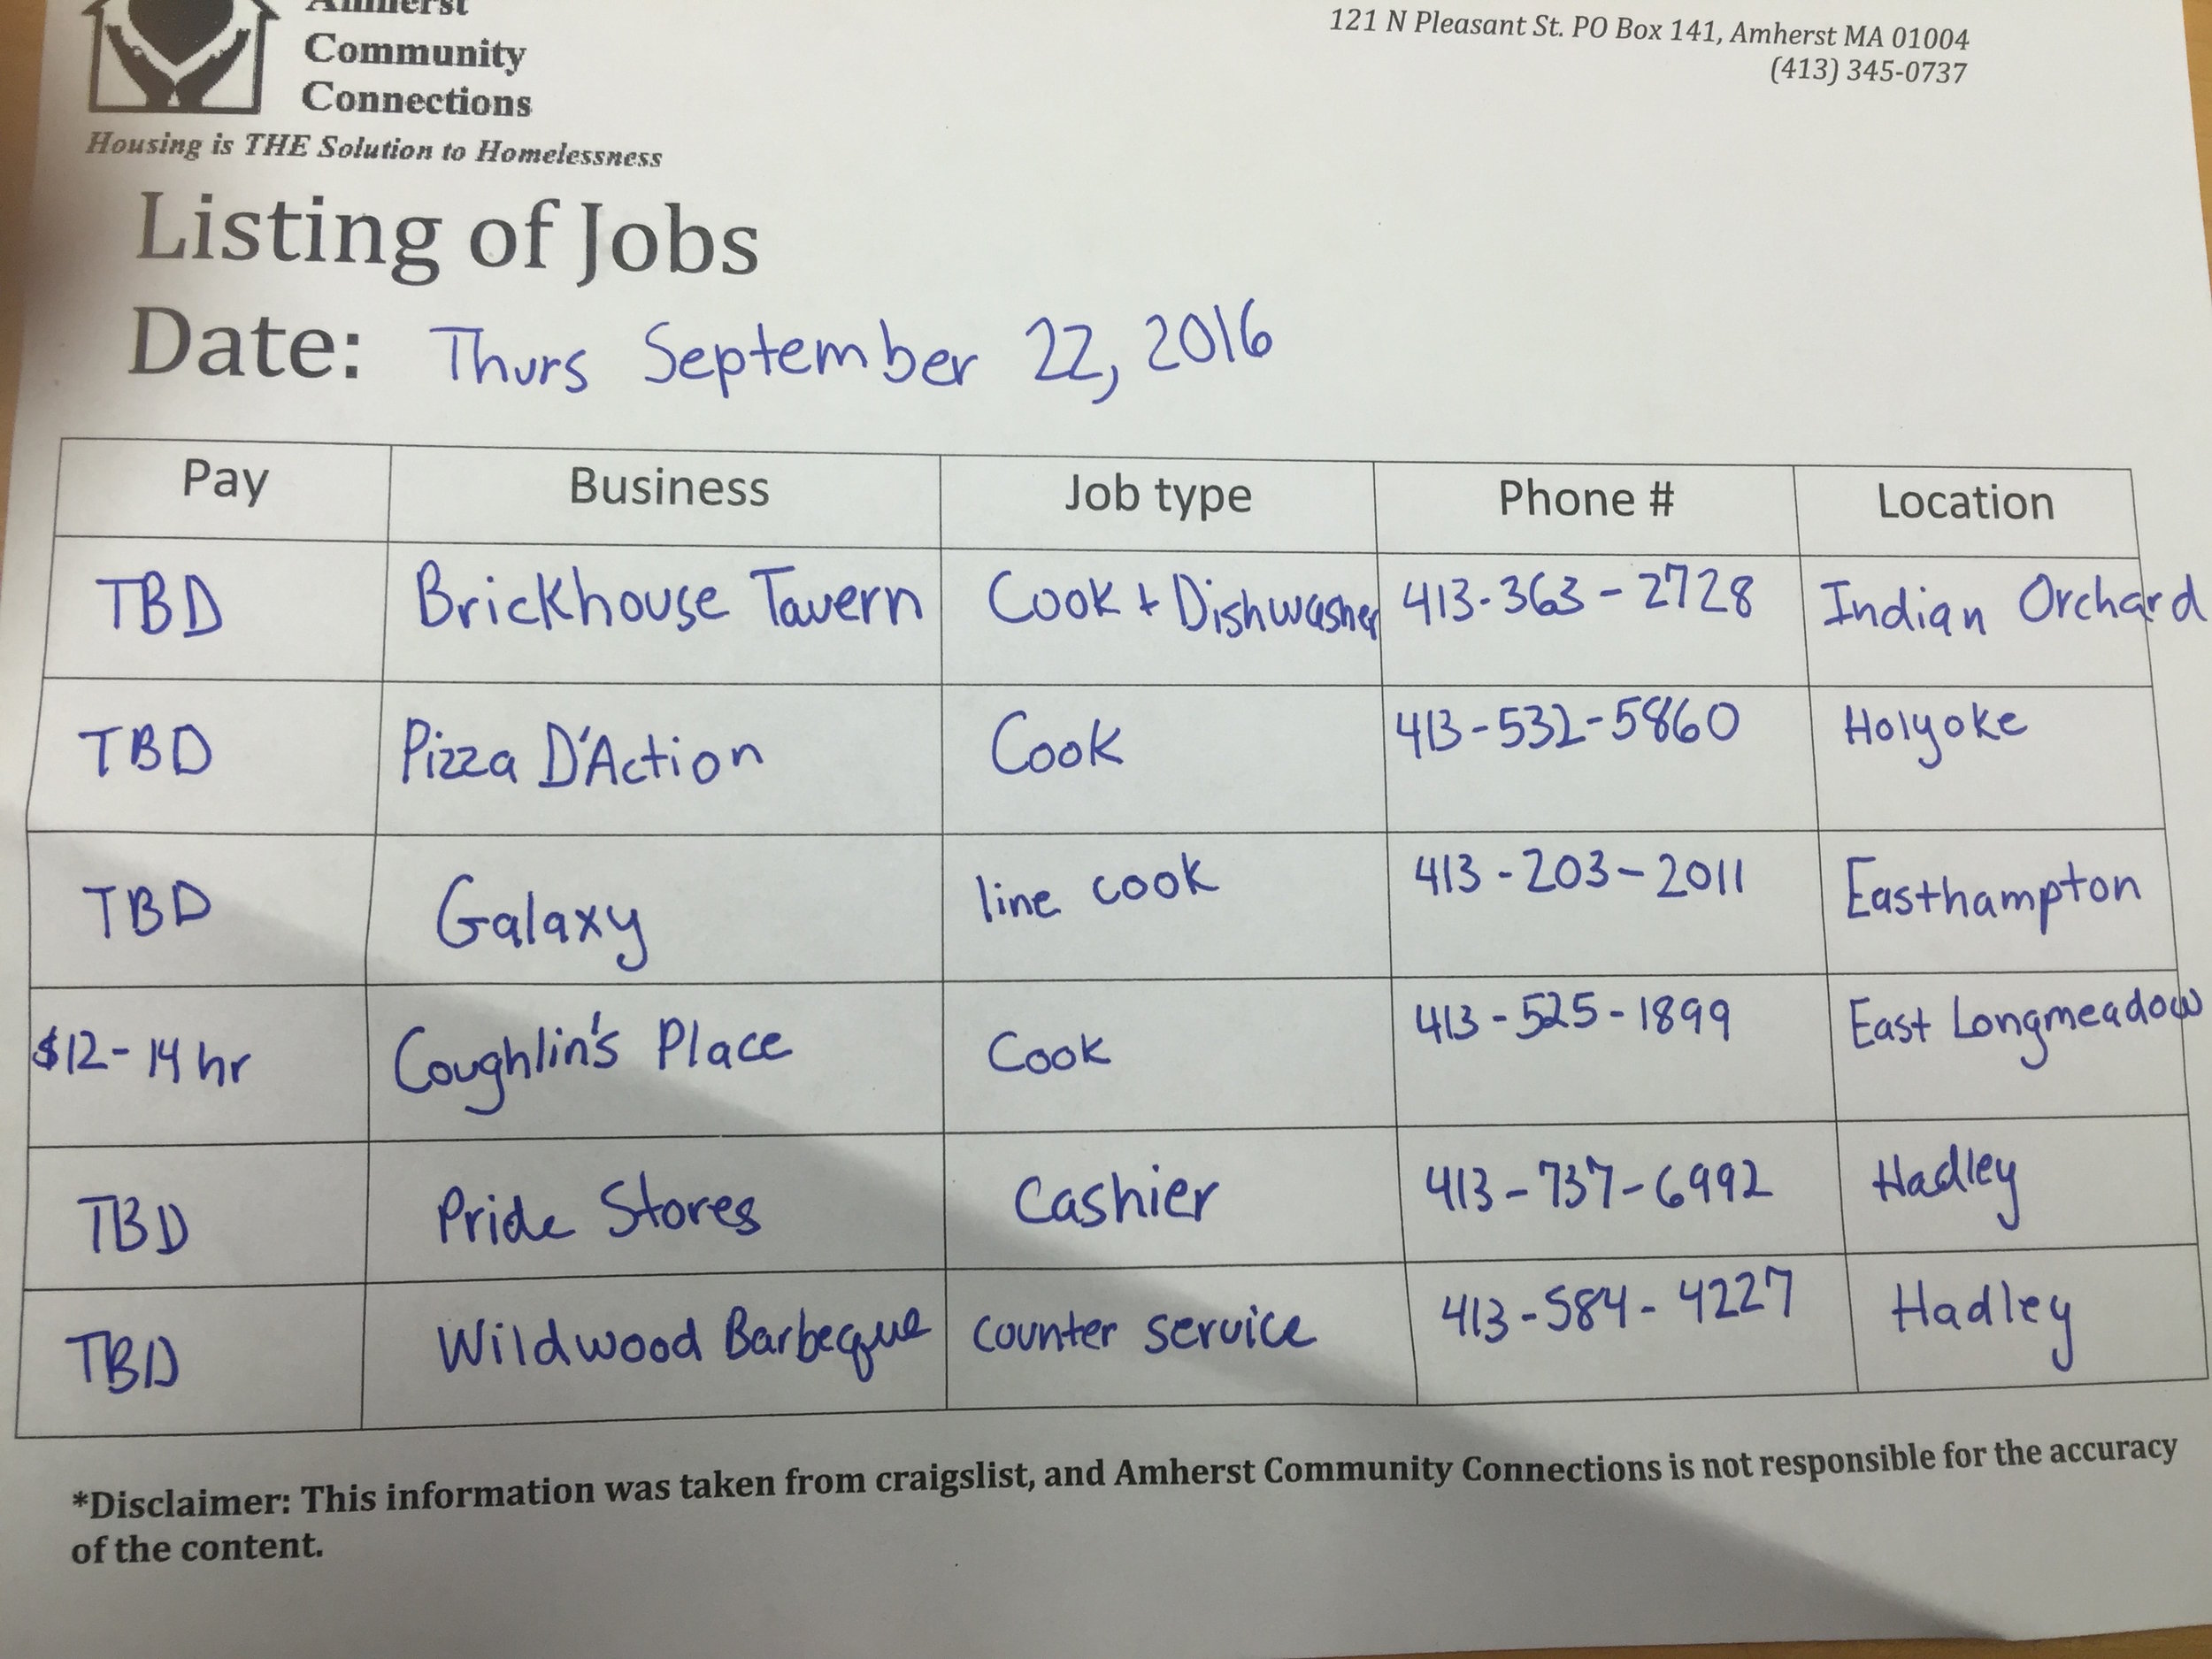 Amherst
Community
Connections
Housing is THE Solution to Homelessness
121 N Pleasant St. PO Box 141, Amherst MA 01004
(413) 345-0737
Listing of Jobs
Date: Thurs September 22, 2016
Pay Business Job type Phone # Location
TBD Brickhouse Tavern Cook + Dishwasher 413-363-2728 Indian Orchard
TBD Pizza D'Action Cook 413-532-5860 Holyoke
TBD Galaxy line cook 413-203-2011 Easthampton
$12-14 hr Coughlin's Place Cook 413-525-1899 East Longmeadow
TBD Pride Stores Cashier 413-737-6992 Hadley
TBD Wildwood Barbeque counter service 413-584-4227 Hadley
*Disclaimer: This information was taken from craigslist, and Amherst Community Connections is not responsible for the accuracy
of the content.